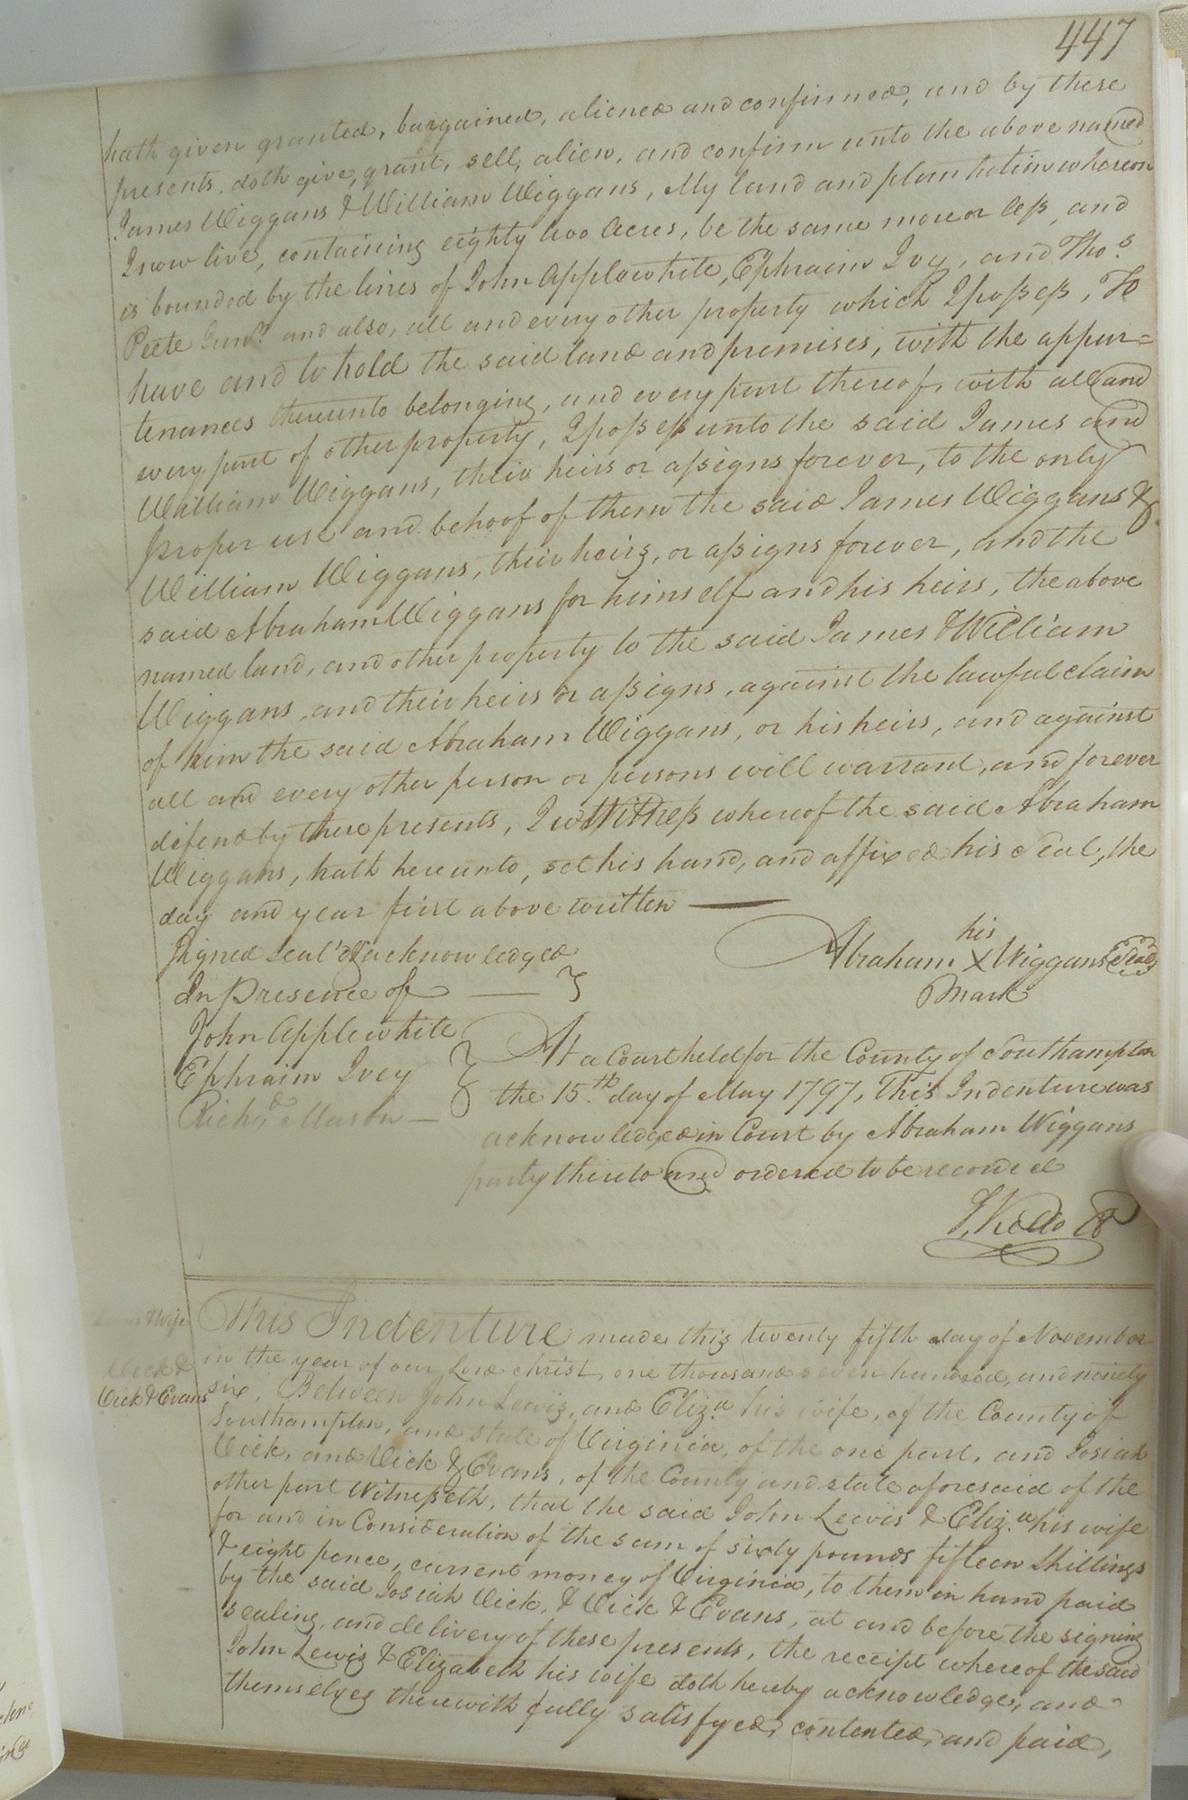 447
hath given granted, bargained, aliened and confirmed, and by these
presents, doth give, grant, sell, alien, and confirm unto the above named
James Wiggans & William Wiggans, My land and plantation whereon
I now live, containing eighty two Acres, be the same more or less, and
is bounded by the lines of John Applewhite, Ephraim Ivy, and Thos.
Peete Junr. and also, all and every other property which I possess, To
have and to hold the said land and premises, with the appur=
tenances thereunto belonging, and every part thereof, with all and
every part of other property, I possess unto the said James and
William Wiggans, their heirs or assigns forever, to the only
proper use and behoof of them the said James Wiggans &
William Wiggans, their heirs, or assigns forever, and the
said Abraham Wiggans for himself and his heirs, the above
named land, and other property to the said James & William
Wiggans, and their heirs or assigns, against the lawful claim
of him the said Abraham Wiggans, or his heirs, and against
all and every other person or persons will warrant, and forever
defend by these presents, In witness whereof the said Abraham
Wiggans, hath hereunto, set his hand, and affixed his Seal, the
day and year first above written —
Signed Seal'd & acknowledged
In Presence of —
John Applewhite
Ephraim Ivey
Richd. Mason —
his
Abraham X Wiggans Seal
Mark
At a Court held for the County of Southampton
the 15th. day of May 1797, This Indenture was
acknowledged in Court by Abraham Wiggans
party thereto and ordered to be recorded
Wife
Vick &
Vick & Evans
This Indenture made this twenty fifth day of November
in the year of our Lord Christ, one thousand seven hundred, and ninety
six, Between John Lewis, and Eliza. his wife, of the County of
Southampton, and state of Virginia, of the one part, and Josiah
Vick, and Vick & Evans, of the County and state aforesaid of the
other part Witnesseth, that the said John Lewis & Eliza. his wife
for and in Consideration of the sum of sixty pounds fifteen Shillings
& eight pence, current money of Virginia, to them in hand paid
by the said Josiah Vick, & Vick & Evans, at and before the signing
sealing, and delivery of these presents, the receipt whereof the said
John Lewis & Elizabeth his wife doth hereby acknowledge, and
themselves therewith fully satisfyed, contented, and paid,